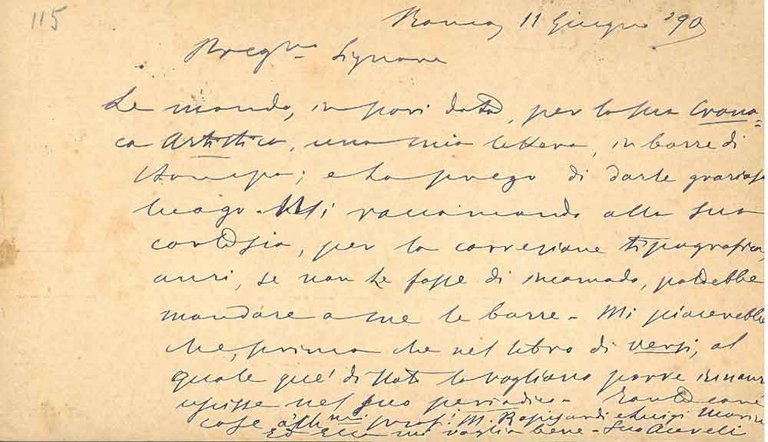 115
Roma, 11 Giugno '90
Preg.mo Signore
Le mando, in pari data, per la sua Crona=
ca Artistica, una mia lettera, in bozze di
stampa; e La prego di darle grazioso
luogo. Mi raccomando alla sua
cortesia, per la correzione tipografica,
anzi, se non Le fosse di incomodo, potrebbe
mandare a me le bozze - Mi piacerebbe
che, prima che nel libro di versi, al
quale que' di vogliono porre innanzi
uscisse nel suo periodico - Tante care
cose M. Rapisardi e Luigi
Ed Ella mi voglia bene - Suo